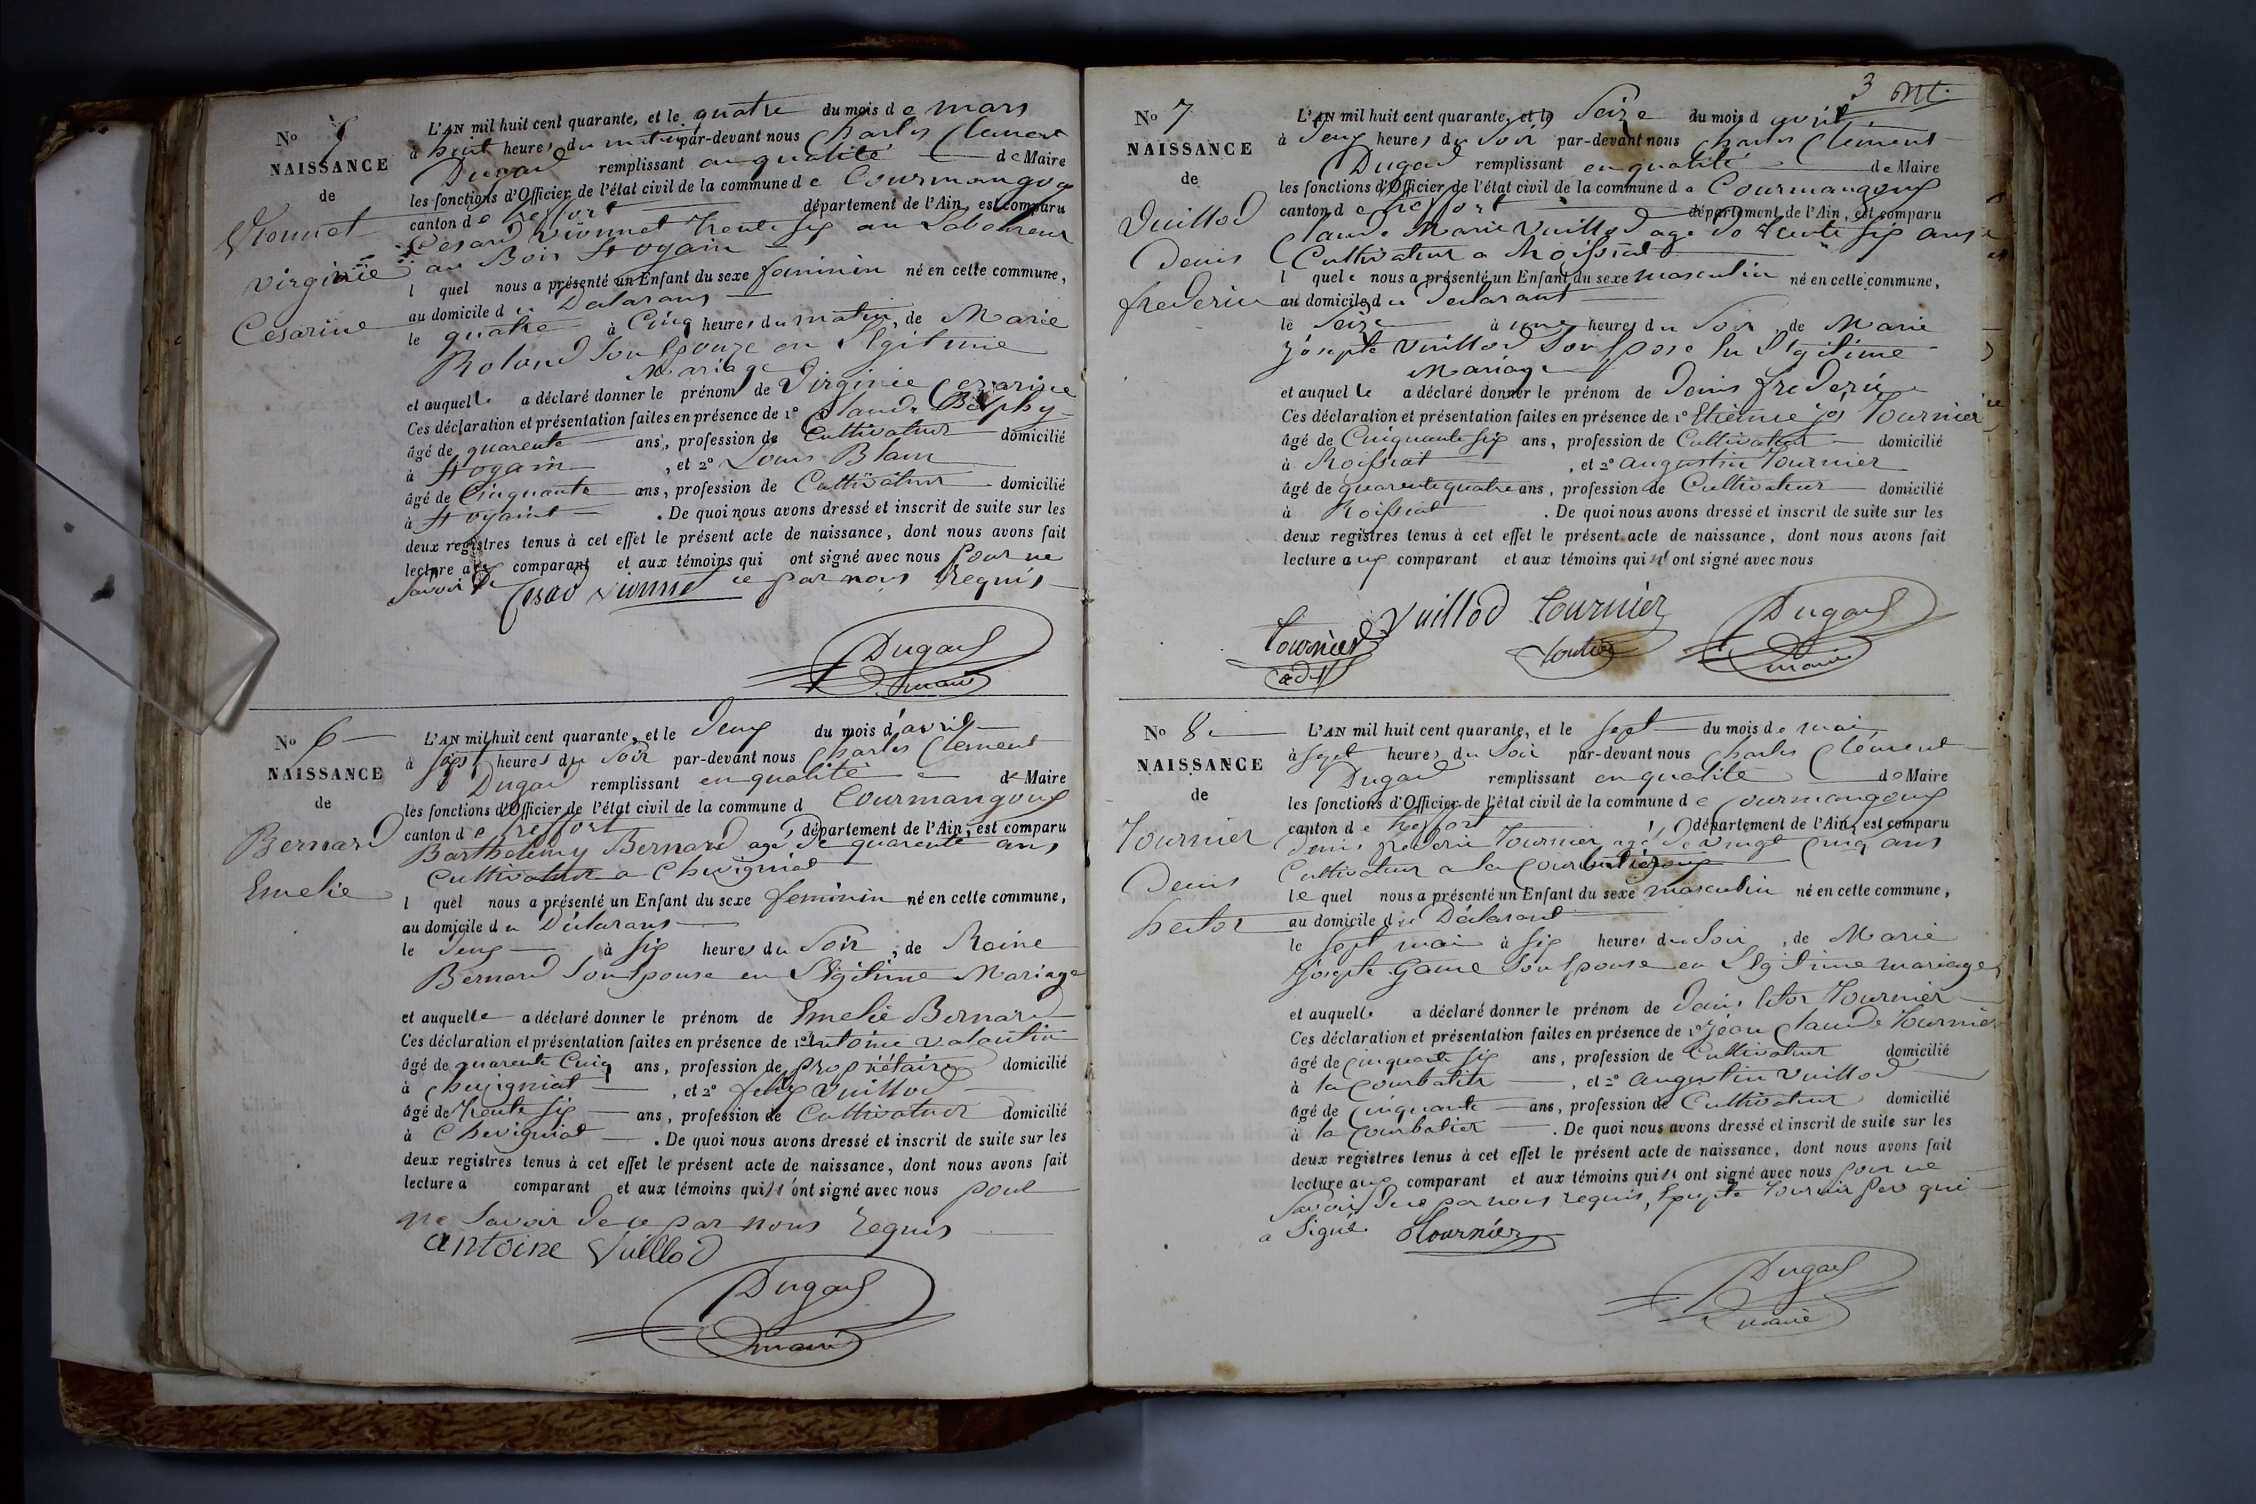 No 5
NAISSANCE
de
Vionnet
virginie
Cesarine
L'AN mil huit cent quarante, et le quatre du mois de mars
à huit heures du matin par-devant nous Charles Clement
Dugad remplissant en qualité de Maire
les fonctions d'Officier de l'état civil de la commune de Courmangoux
canton de treffort département de l'Ain, est comparu
Cesard Vionnet trente six an Laboureur
au Bois
l quel nous a présenté un Enfant du sexe feminin né en cette commune,
au domicile du Déclarans
le quatre à Cinq heures du matin, de Marie
Roland Son Epouze en Légitime
Mariage
et auquelle a déclaré donner le prénom de Virginie Cezarine
Ces déclaration et présentation faites en présence de 1º Claude
âgé de quarente ans, profession de Cultivateur domicilié
à , et 2º Louis Blanc
âgé de Cinquante ans, profession de Cultivateur domicilié
à . De quoi nous avons dressé et inscrit de suite sur les
deux registres tenus à cet effet le présent acte de naissance, dont nous avons fait
lecture aux comparant et aux témoins qui ont signé avec nous pour ne
Savoir de ce par nous requis
Cesard Vionnet
Dugad
maire
No 6
NAISSANCE
de
Bernard
Emelie
L'AN mil huit cent quarante, et le Deux du mois d'avril
à sept heures du Soir par-devant nous Charles Clement
Dugad remplissant en qualité de Maire
les fonctions d'Officier de l'état civil de la commune d Courmangoux
canton de treffort département de l'Ain, est comparu
Barthelemy Bernard age de quarente ans
Cultivateur a Chevigniat
l quel nous a présenté un Enfant du sexe feminin né en cette commune,
au domicile du Déclarans
le Deux à six heures du Soir, de Reine
Bernard Son Epouse en Légitime Mariage
et auquelle a déclaré donner le prénom de Emelie Bernard
Ces déclaration et présentation faites en présence de 1º Antoine Valentin
âgé de quarente Cinq ans, profession de propriétaire domicilié
à Chevigniat, et 2º felix Vuillod
âgé de trente six ans, profession de Cultivateur domicilié
à Chevigniat. De quoi nous avons dressé et inscrit de suite sur les
deux registres tenus à cet effet le présent acte de naissance, dont nous avons fait
lecture a comparant et aux témoins qui n'ont signé avec nous pour
ne Savoir de ce par nous requis
antoine Vuillod
Dugad
maire
3
No 7
NAISSANCE
de
Vuillod
Denis
frederic
L'AN mil huit cent quarante, et le Seize du mois d avril
à Deux heures du Soir par-devant nous Charles Clément
Dugad remplissant en qualité de Maire
les fonctions d'Officier de l'état civil de la commune de Courmangoux
canton de treffort département de l'Ain, est comparu
Claude Marie Vuillod age de trente six ans
Cultivateur a Roissiat
l quel nous a présenté un Enfant du sexe masculin né en cette commune,
au domicile du Declarant
le Seize à une heures du Soir, de Marie
Josepte Vuillod Son Epose En Légitime
Mariage
et auquelle a déclaré donner le prénom de denis frederic
Ces déclaration et présentation faites en présence de 1º Etienne Tournier
âgé de Cinquante six ans, profession de Cultivateur domicilié
à Roissiat, et 2º augustin Tournier
âgé de quarente quatre ans, profession de Cultivateur domicilié
à Roissiat. De quoi nous avons dressé et inscrit de suite sur les
deux registres tenus à cet effet le présent acte de naissance, dont nous avons fait
lecture aux comparant et aux témoins qui ont signé avec nous
Vuillod Tournier Dugad
Tournier maire
No 8
NAISSANCE
de
Tournier
Denis
hector
L'AN mil huit cent quarante, et le sept du mois de mai
à sept heures du Soir par-devant nous Charles Clément
Dugad remplissant en qualite de Maire
les fonctions d'Officier de l'état civil de la commune de Courmangoux
canton de treffort département de l'Ain, est comparu
denis frederic Tournier agé de vingt Cinq ans
Cultivateur a la
le quel nous a présenté un Enfant du sexe masculin né en cette commune,
au domicile du Déclarant
le sept mai à six heures du Soir, de Marie
Josepte Game Son Epouse en Légitime mariage
et auquelle a déclaré donner le prénom de Denis Tournier
Ces déclaration et présentation faites en présence de 1º Jean Claude Tournier
âgé de cinquante six ans, profession de Cultivateur domicilié
à la Courbatier, et 2º augustin Vuillod
âgé de Cinquante ans, profession de Cultivateur domicilié
à la Courbatier. De quoi nous avons dressé et inscrit de suite sur les
deux registres tenus à cet effet le présent acte de naissance, dont nous avons fait
lecture aux comparant et aux témoins qui n ont signé avec nous pour ne
Savoir de ce par nous requis, Excepte tournier qui
a Signé Tournier
Dugad
maire